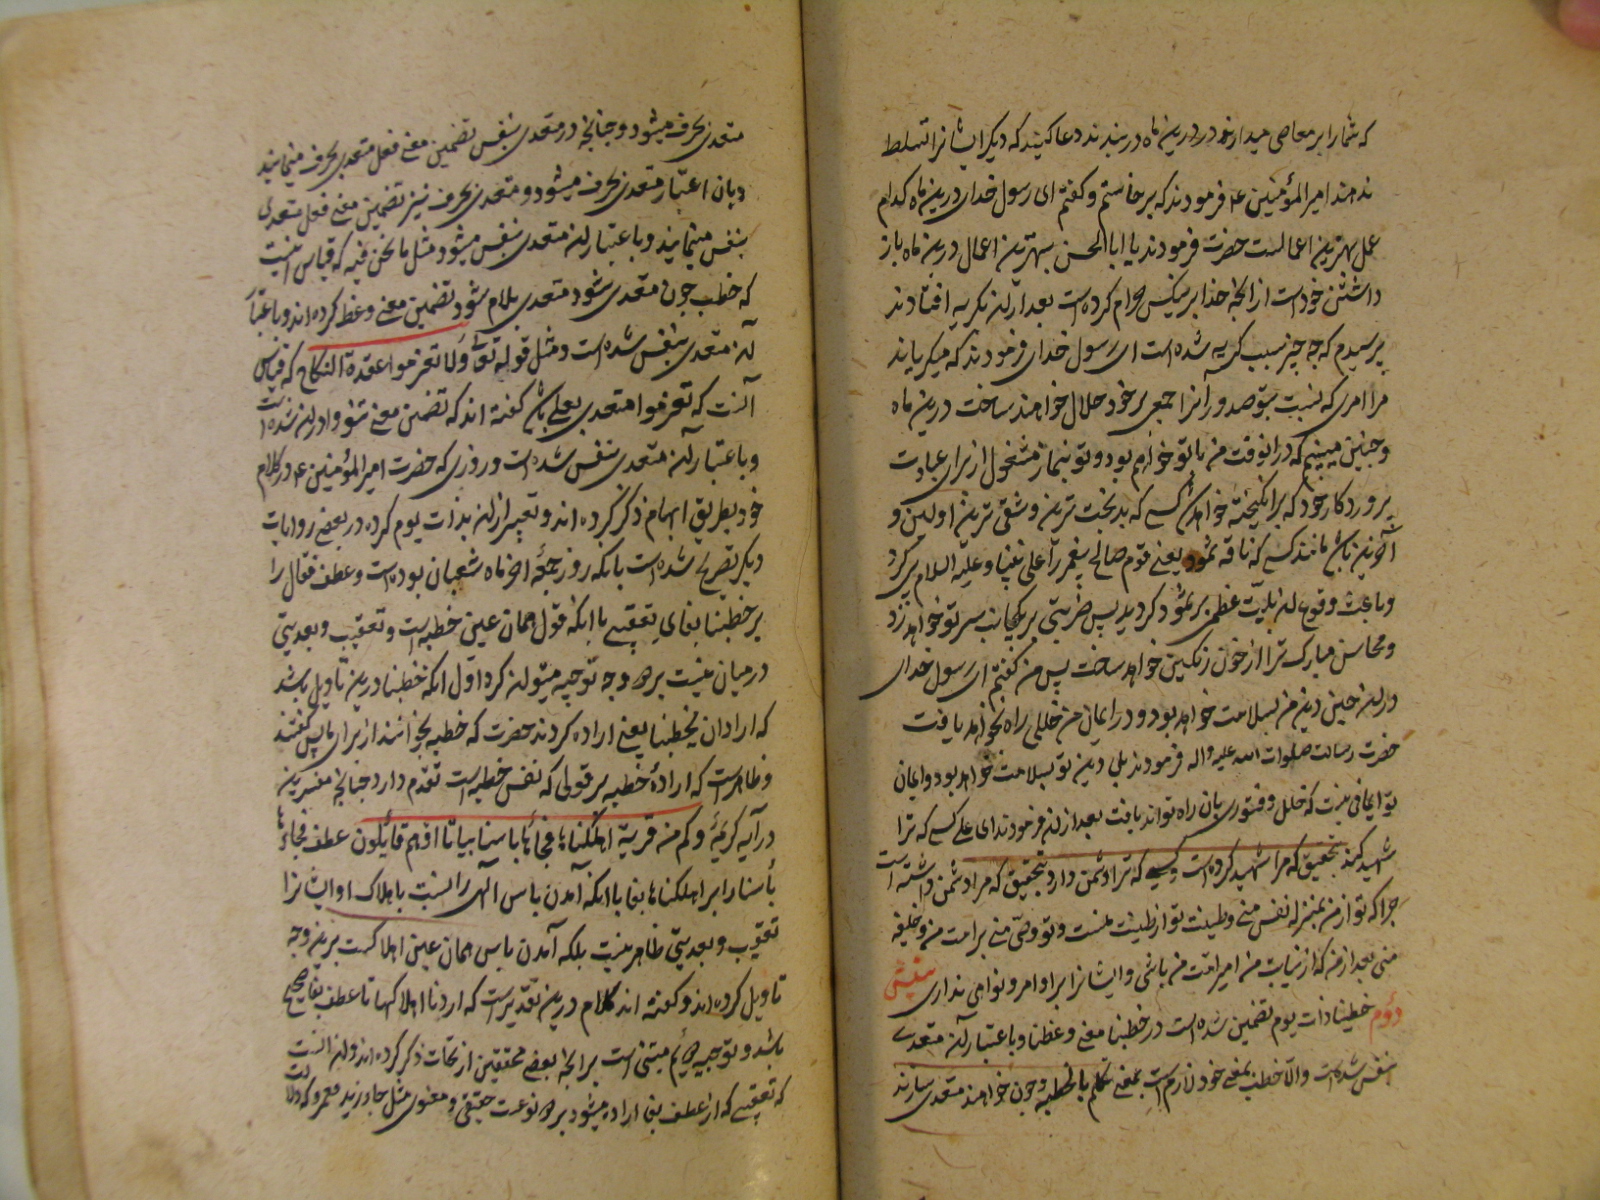 که شما را بر معاصی میدارند در درین ماه در بندند دعا کنید که دیگر ایشانرا تسلط
ندهند امیر المؤمنین ع فرمودند که برخاستم و گفتم ای رسول خدا درین ماه کدام
عمل بهترین اعمالست حضرت فرمودند یا ابا الحسن بهترین اعمال درین ماه باز
داشتن خودست از آنچه خدا بر کس حرام کرده است بعد از آن بگریه افتادند
پرسیدم که چه چیز سبب گریه شده است ای رسول خدای فرمودند که میگریاند
مرا امری که نسبت بتو صدور آنرا جمعی بر خود حلال خواهند ساخت درین ماه
و چنین میبینم که در آنوقت من با تو خواهم بود و تو بنماز مشغول از برای عبادت
پروردگار خود که برانگیخته خواهد شد کسی که بدبخت ترین و شقی ترین اولین و
آخرین باشد مانند کسی که ناقه ثمود یعنی قوم صالح پیغمبر را علی نبینا و علیه السلام پی کرد
و باعث وقوع آن بلیّت عظمی بر ثمود گردید پس ضربتی بر یکجانب سر تو خواهد زد
و محاسن مبارک ترا از خون رنگین خواهد ساخت پس من گفتم ای رسول خدای
در آن حین دین من بسلامت خواهد بود و در ایمان من خللی راه نخواهد یافت
حضرت رسالت صلوات الله علیه و اله فرمودند بلی دین تو بسلامت خواهد بود و ایمان
تو ایمانی نیست که خلل و فتوری بان راه تواند یافت بعد از آن فرمودند ای علی کسی که ترا
شهید کند بتحقیق که مرا شهید کرده است و کسی که ترا دشمن دارد بتحقیق که مرا دشمن داشته است
چرا که تو از من بمنزله نفس منی و طینت تو از طینت منست و تو وصی منی بر امت من و خلیفه
منی بعد از من که از نیابت من امیر امّت من باشی و ایشانرا بر اوامر و نواهی بداری
دوّم خطبنا ذات یوم تضمین شده است در خطبنا معنی وعظنا و باعتبار آن متعدی
بنفس شده است و الّا خطب بمعنی خود لازم است بمعنی تکلم بالخطبه و چون خواهند متعدی سازند
متعدی بحرف میشود و چنانچه در متعدی بنفس تضمین معنی فعل متعدی بحرف مینمایند
و بان اعتبار متعدی بحرف میشود و متعدی بحرف نیز تضمین معنی فعل متعدی
بنفس مینمایند و باعتبار آن متعدی بنفس میشود مثل ما نحن فیه که قیاس اینست
که خطب چون متعدی شود متعدی بلام شود تضمین معنی وعظ کرده اند و باعتبار
آن متعدی بنفس شده است و مثل قوله تعالی ولا تعزموا عقدة النکاح که قیاس
آنست که تعزموا متعدی بعلی باشد گفته اند که تضمین معنی تنووا در آن شده است
و باعتبار آن متعدی بنفس شده است و روزی که حضرت امیر المؤمنین ع در کلام
خود بطریق ابهام ذکر کرده اند و تعبیر از آن بذات یوم کرده در بعضی روایات
دیگر تصریح شده است بانکه روز جمعهٔ آخر ماه شعبان بوده است و عطف فقال را
بر خطبنا بفای تعقیب با آنکه قول همان عین خطبه است و تعقیب و بعدیتی
در میان نیست بر دو وجه توجیه میتوان کرد اول آنکه خطبنا درین تأویل باشد
که اراد ان یخطبنا یعنی اراده کردند حضرت که خطبه بخوانند از برای ما پس گفتند
و ظاهرست که ارادهٔ خطبه بر قولی که نفس خطبه است تقدم دارد چنانچه مفسرین
در آیه کریمهٔ وکم من قریة اهلکناها فجائها باسنا بیاتا او هم قائلون عطف فجاءها
بأسنا را بر اهلکناها بفا با آنکه آمدن باس الهی را نسبت باهلاک او ایشانرا
تعقیب و بعدیتی ظاهر نیست بلکه آمدن باس همان عین اهلاکست برین وجه
تاویل کرده اند و گفته اند کلام درین تقدیرست که اردنا اهلاکها تا عطف بفا صحیح
باشد و توجیه دوّیم مبتنی است بر آنچه بعضی محققین از نحات ذکر کرده اند و آن آنست
که تعقیبی که از عطف بفا اراده میشود بر دو نوعست حقیقی و معنوی مثل جاء زید فعمرو که دلالت